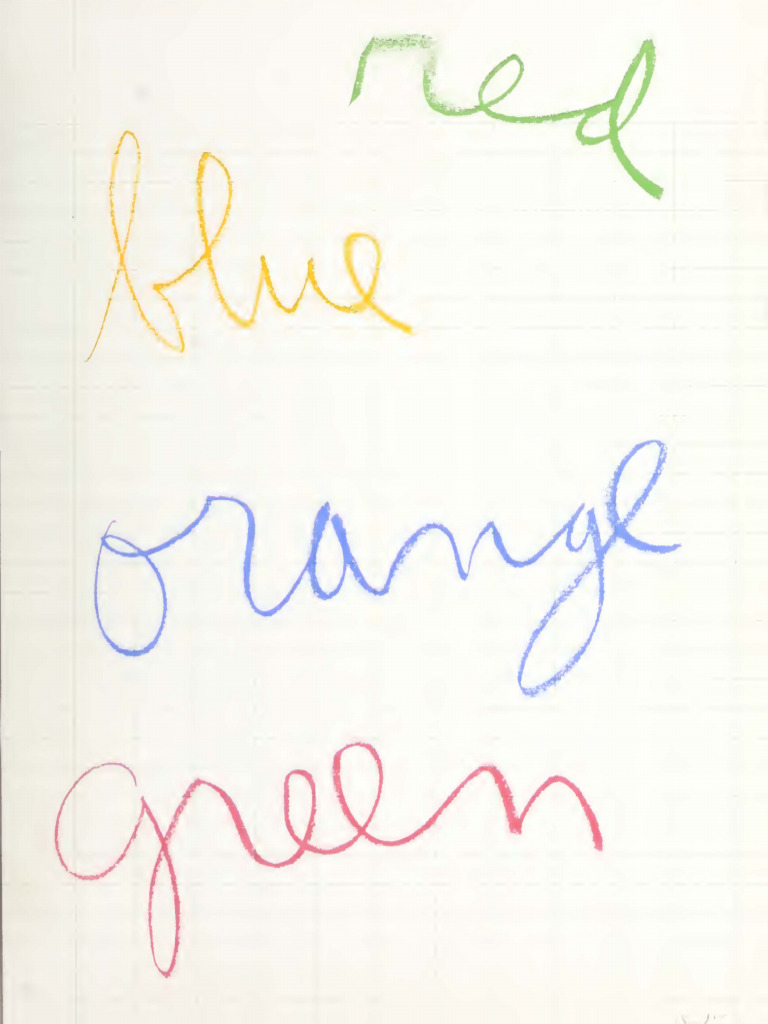 red
blue
orange
green